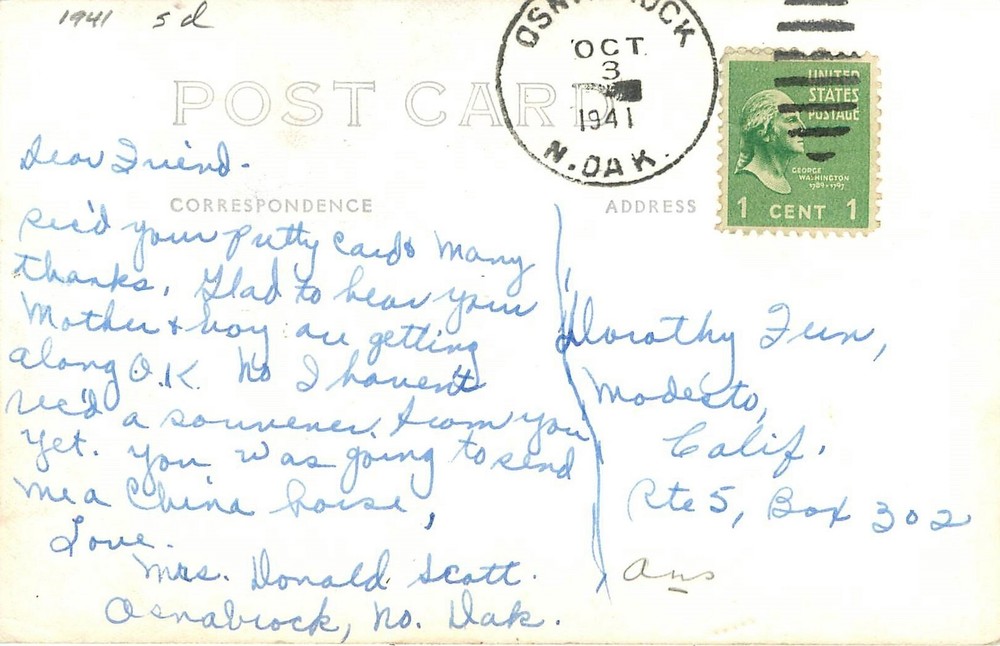 1941 5 d
OSNABROCK
OCT
3
1941
N. DAK.
UNITED
STATES
POSTAGE
GEORGE
WASHINGTON
1789-1797
1 CENT 1
POST CARD
CORRESPONDENCE
ADDRESS
Dear Friend.
Rec'd your pretty cards many
thanks. Glad to hear your
Mother & boy are getting
along O.K. No I haven't
rec'd a souvener from you
yet. You was going to send
me a China horse,
Love.
Mrs. Donald Scott.
Osnabrock, No. Dak.
Dorothy Fern,
Modesto,
Calif.
Rte 5, Box 302
Ans